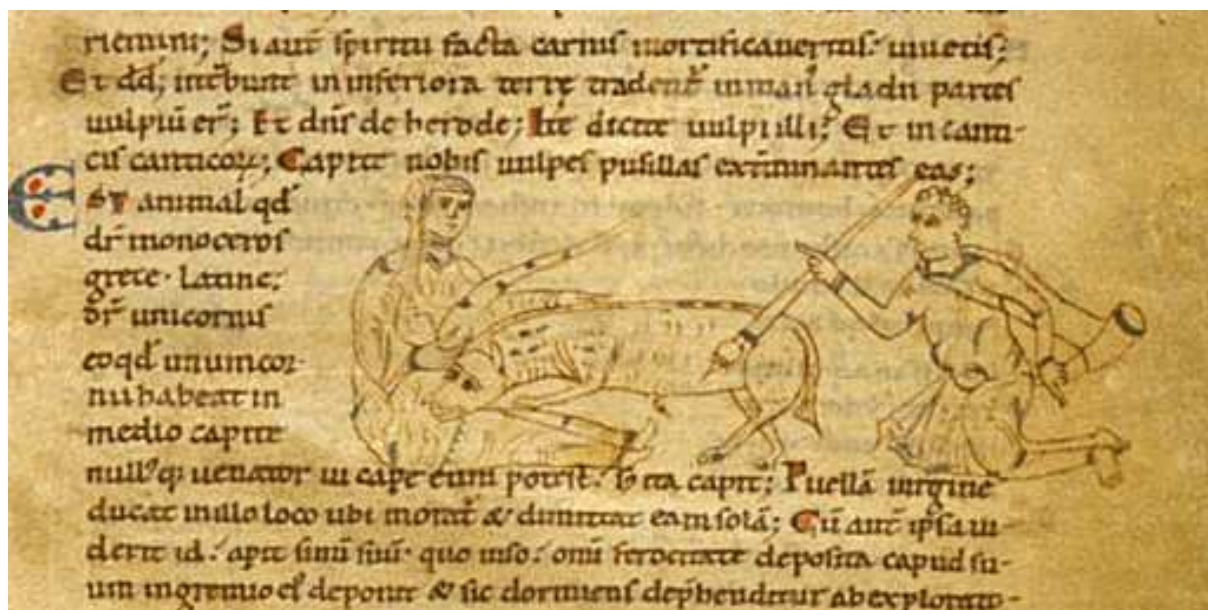 riemini; Si aut̄ spiritu facta carnis mortificaueritis. uiuetis;
Et dd̄; int̄bunt in inferiora terrę tradent̄ in man̄ gladii partes
uulpiū er̄; Et dn̄s de herode; Ite dicite uulpi illi; Et in canti-
cis canticoꝝ; Capite nobis uulpes pusillas ext̄minantes eas;
EST animal qd̄
dr̄ monoceros
grece. Latine;
dr̄ unicornis
eo qd̄ unum cor-
nu habeat in
medio capite
null᷒ q; uenator
eum potest. ita capit; Puellā uirginē
ducat in illo loco ubi morat̄ & dimittat eam solā; Cū aut̄ ipsa ui-
derit id. apit sinū suū. quo uiso. omī ferocitate deposita capud su-
um in gremio ei᷒ deponit & sic dormiens dep̄henditur ab explorato-